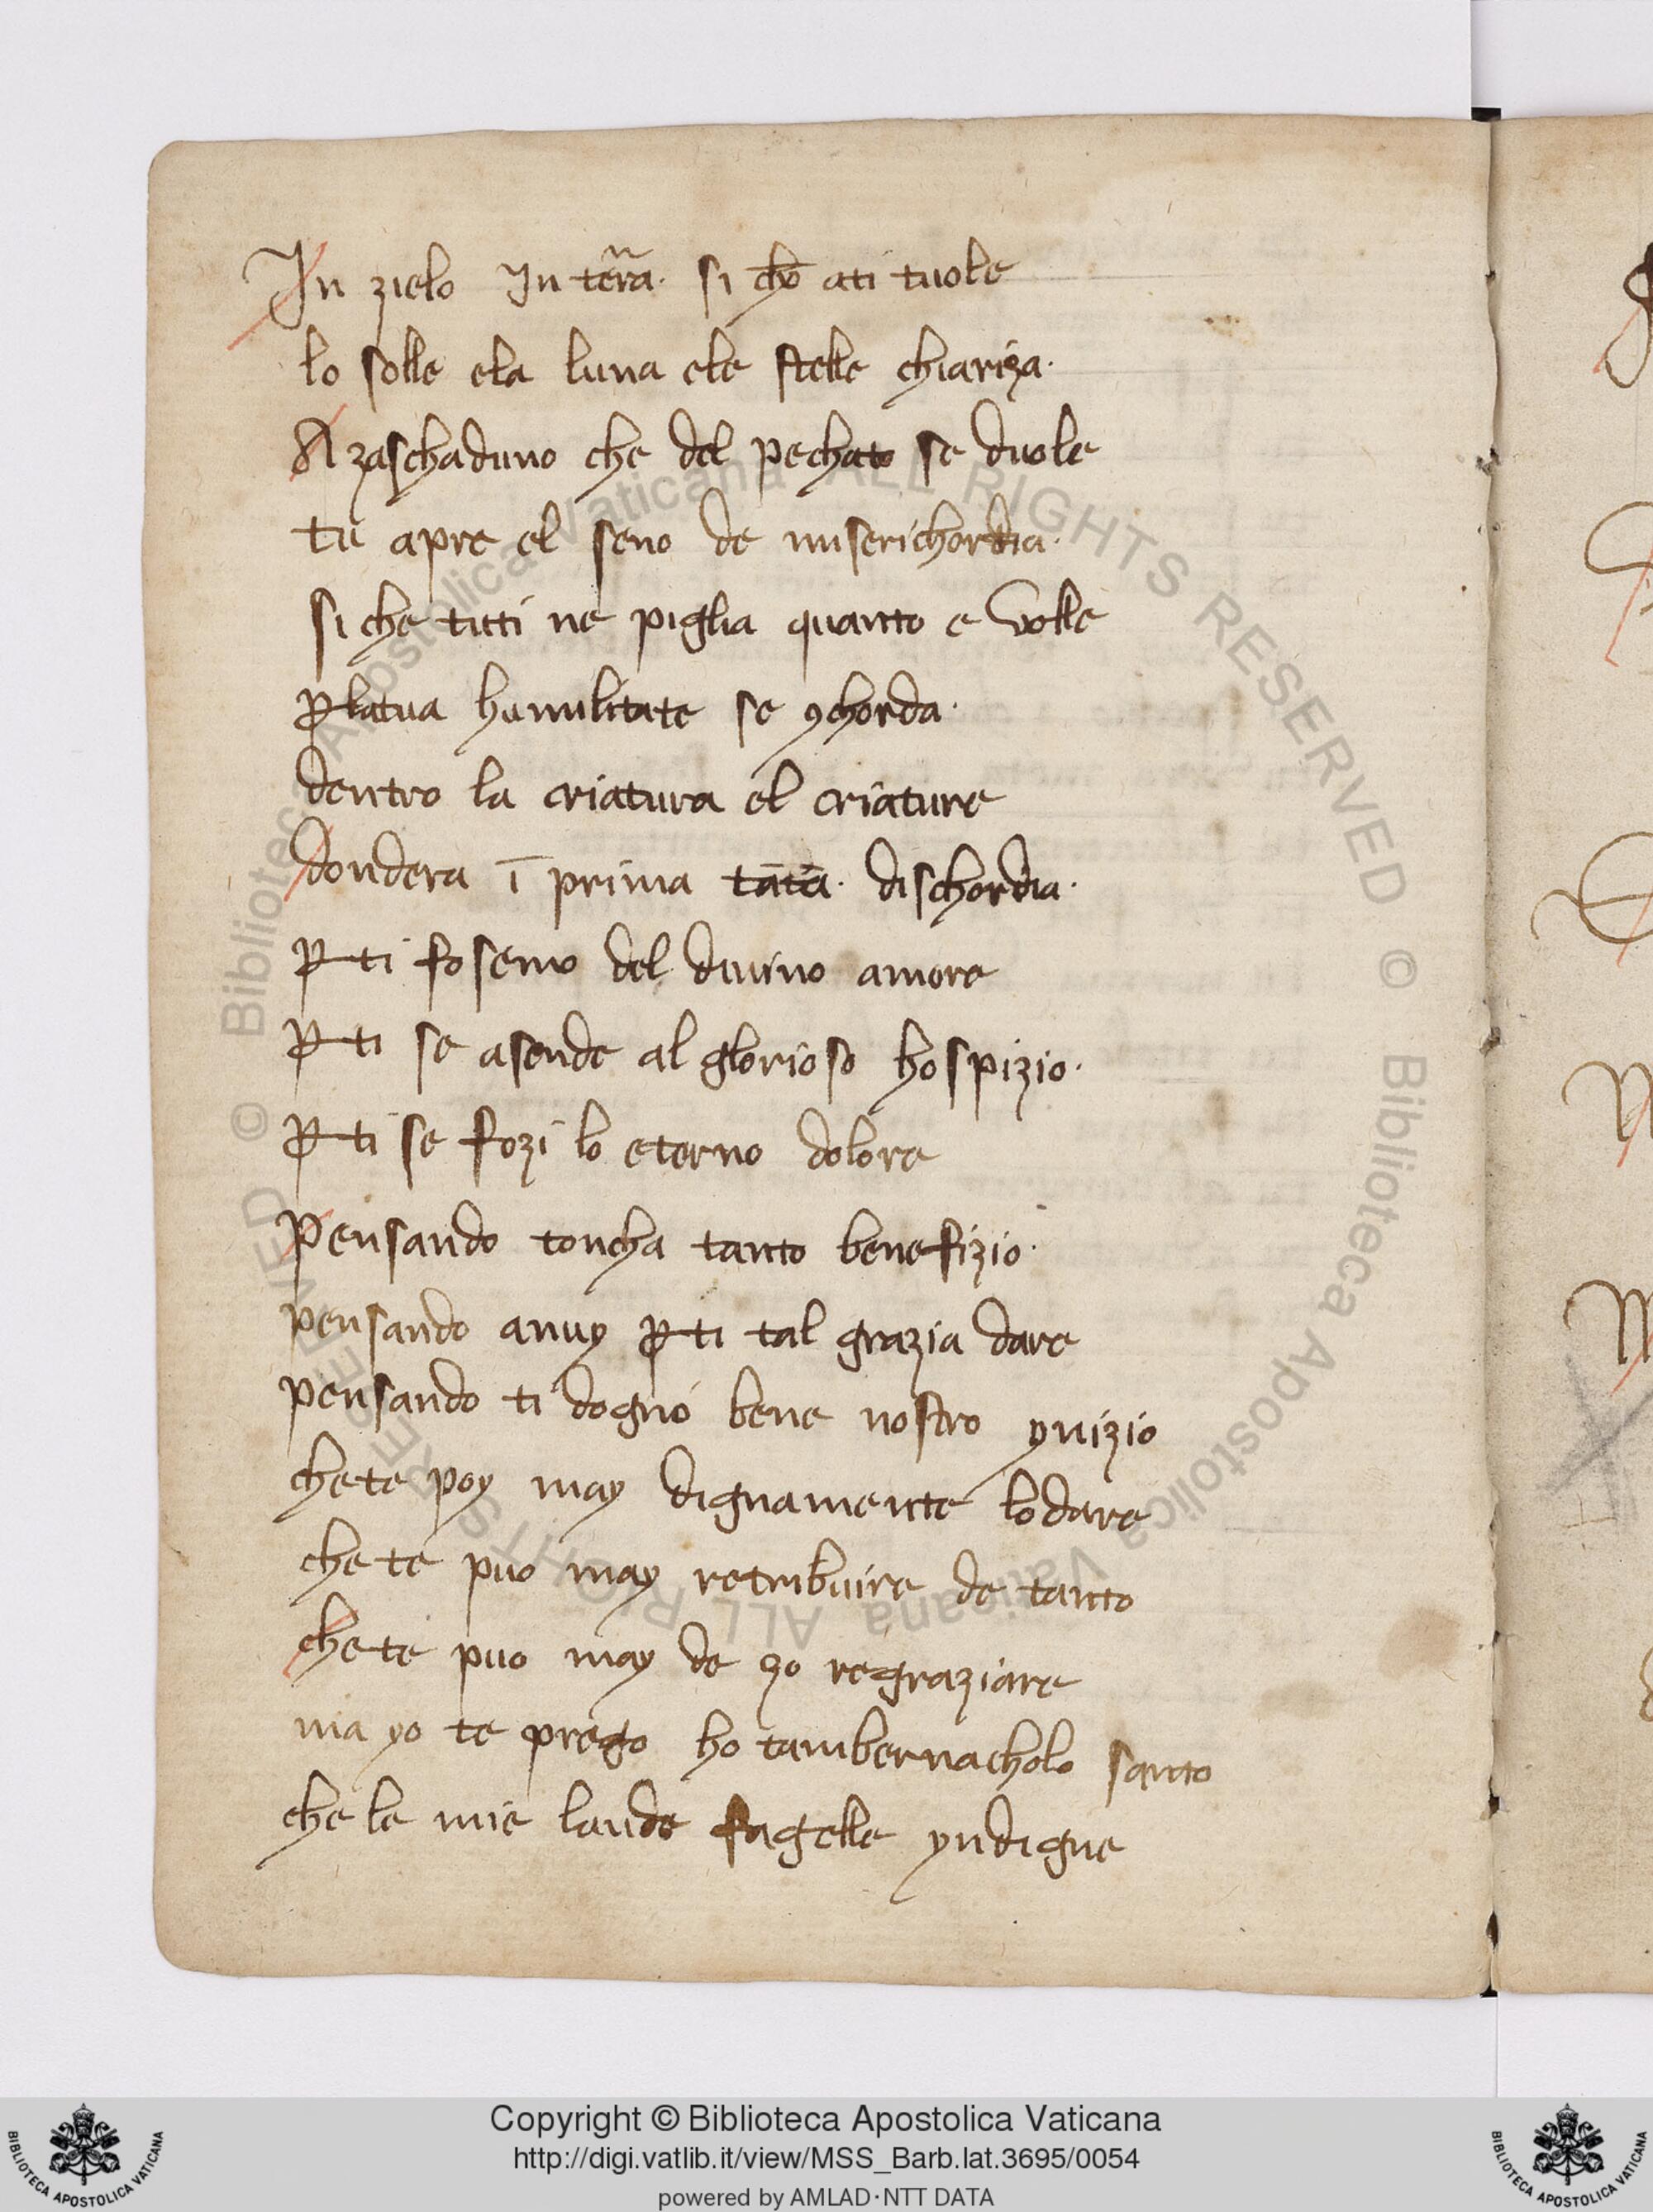 In zielo In terra· si cħo ati tuole
lo solle ela luna ele stelle chiariza·
A zaschaduno che del pechato se duole
tu apre el seno de miserichordia·
si che tuti ne piglia quanto e volle
ꝑ latua humilitate se ꝯchorda·
dentro la criatura el criature
dondera ī prima tāta· dischordia·
ꝑ ti fosemo del diuino amore
ꝑ ti se asende al glorioso hospizio·
ꝑ ti se fozi lo eterno dolore
Pensando toncha tanto benefizio·
pensando anuy ꝑ ti tal grazia dare
pensando ti dogno bene nostro ynizio
che te poy may dignamente lodare
che te puo may retribuire de tanto
che te puo may de zo regraziare
ma yo te prego ho tambernacholo santo
che le mie laude fagelle yndigne
Copyright © Biblioteca Apostolica Vaticana
http://digi.vatlib.it/view/MSS_Barb.lat.3695/0054
powered by AMLAD·NTT DATA